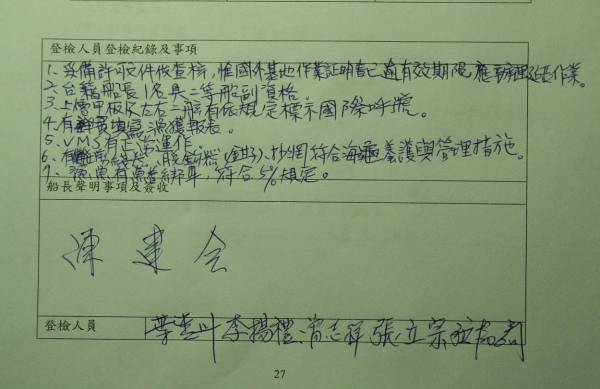 登檢人員登檢紀錄及事項
1、妥備許可文件依查核，惟國外基地作業証明書已逾有效期限，應辦理延長作業。
2、台籍船長1名具二等船副資格。
3、上層甲板及左右二舷有依規定標示國際呼號。
4、有填寫漁獲報表。
5、VMS有正常運作。
6、有、脫鉤器(鉗子)、抄網符合海龜養護與管理措施。
7、有魚翅綁身，符合5%規定。
船長聲明事項及簽收
陳建
登檢人員
葉 李楊禮、曾志祥 張立宗
27